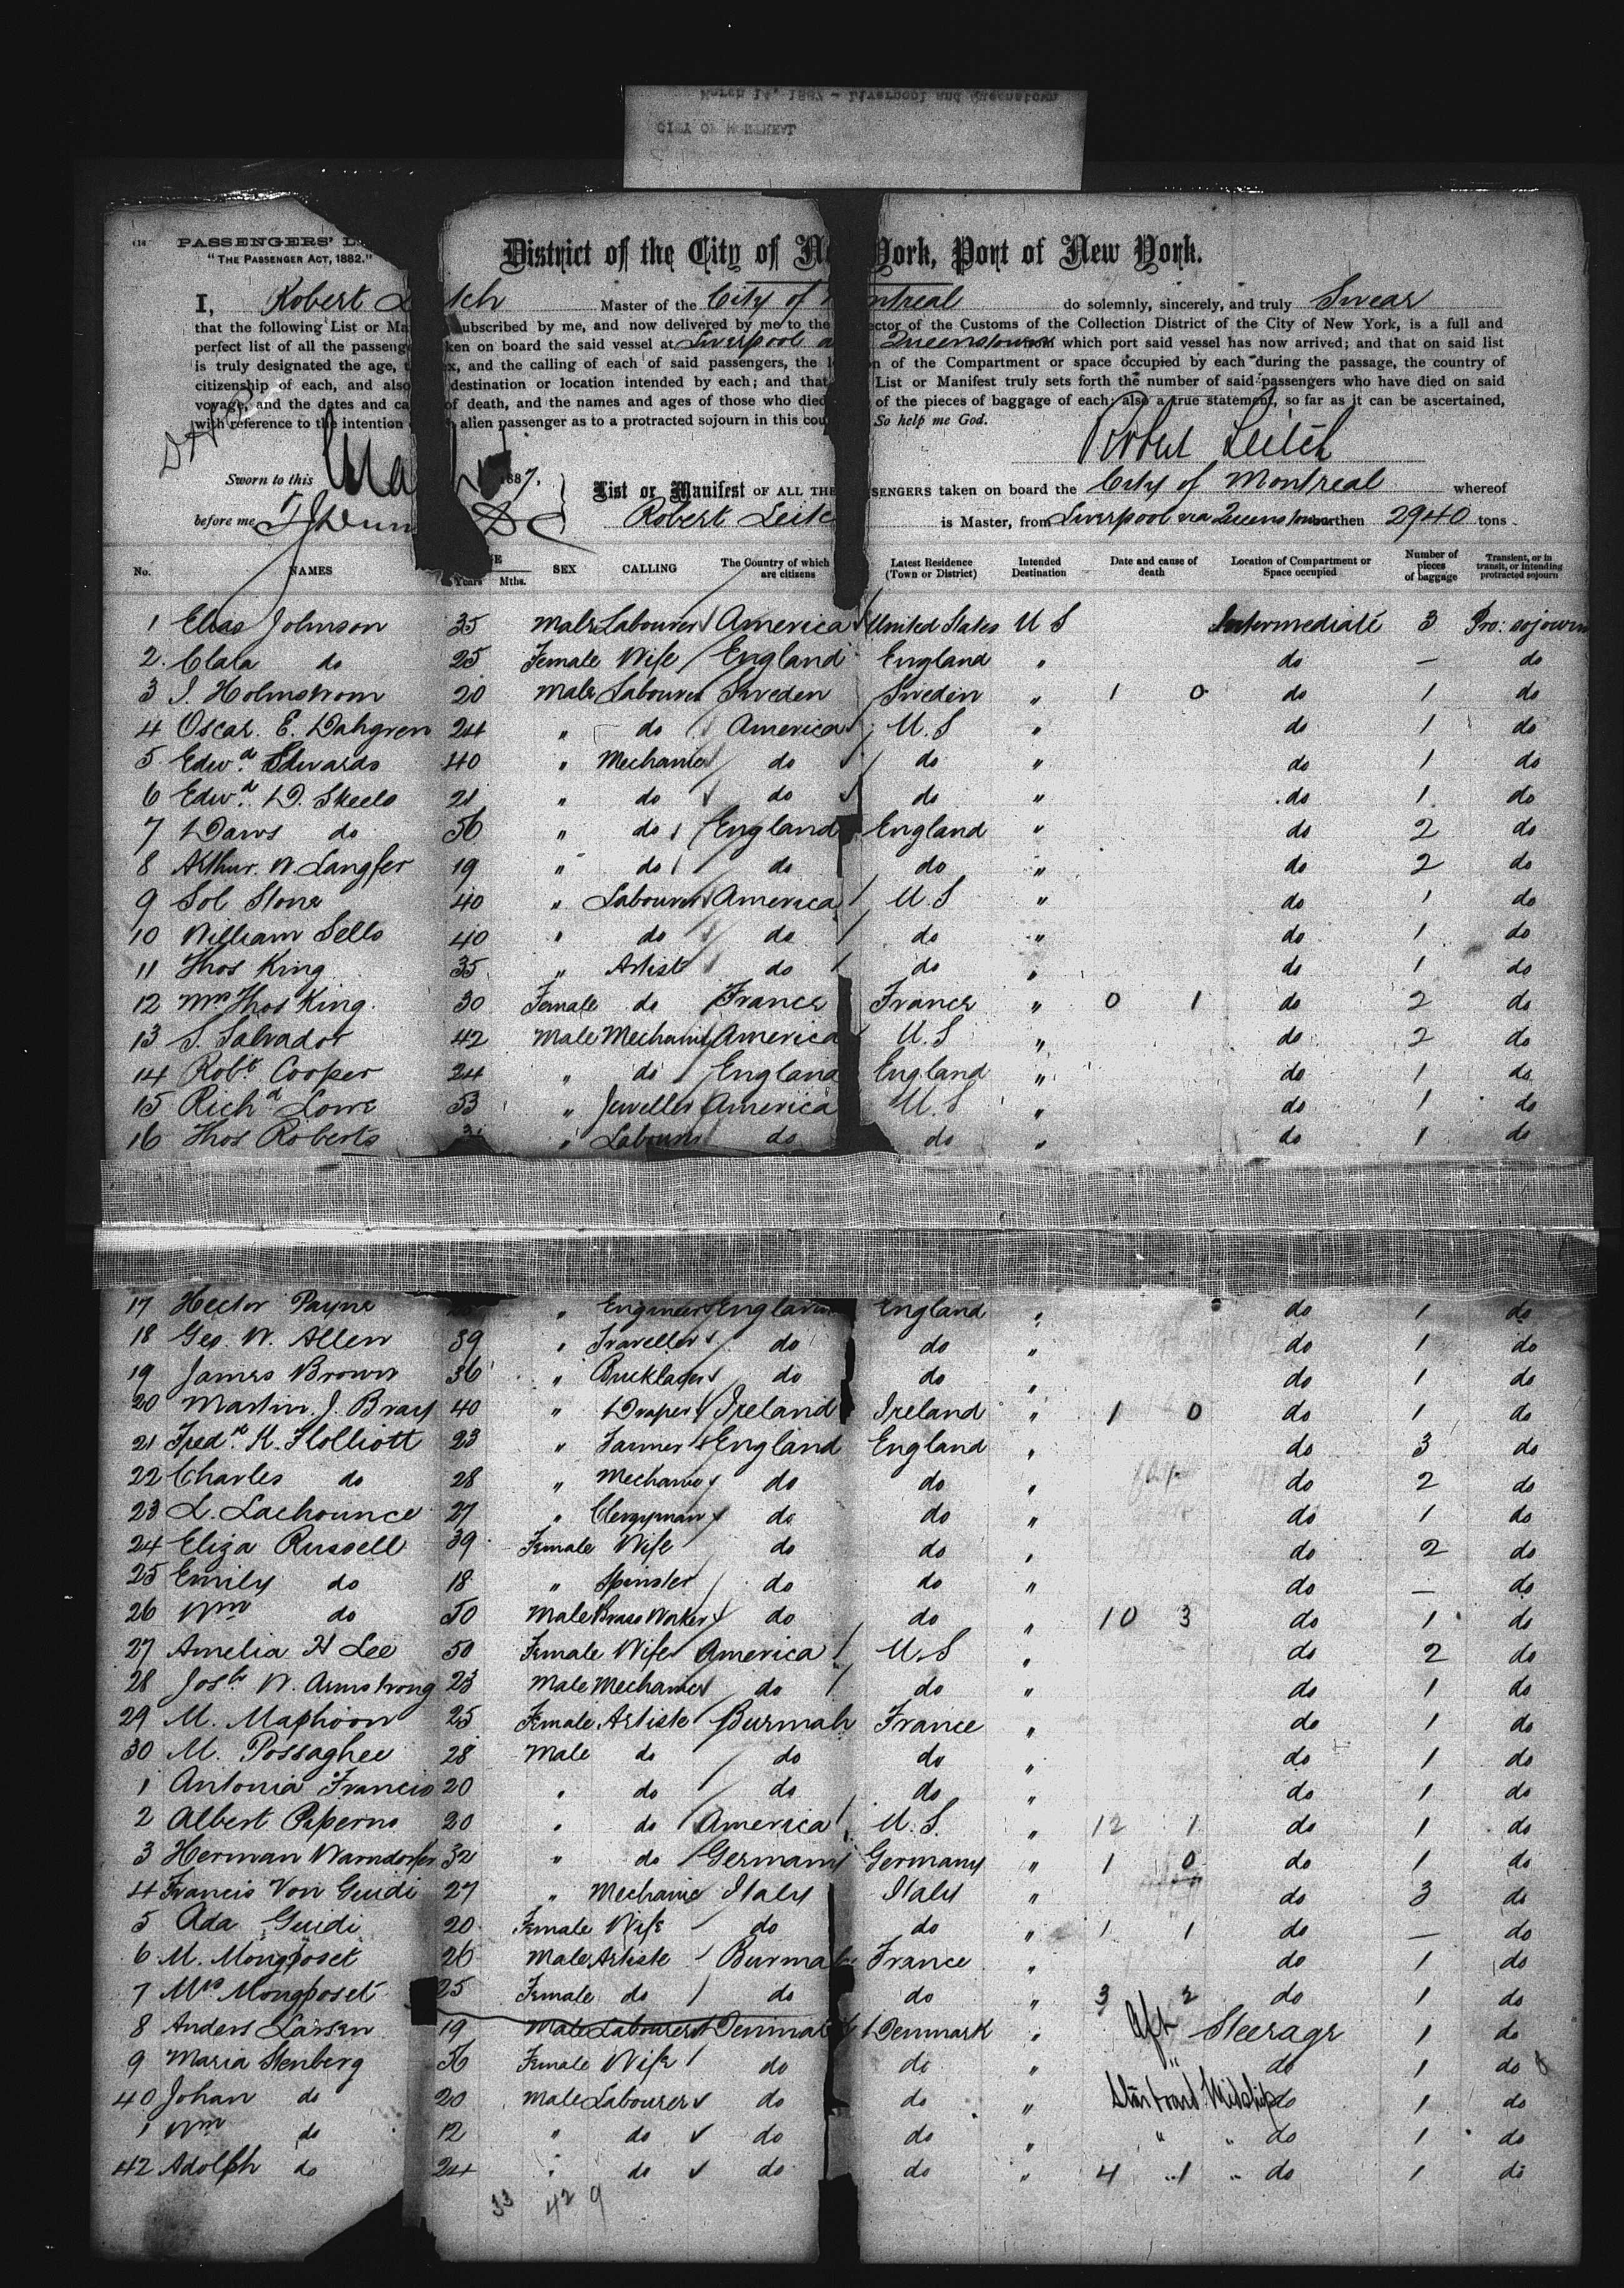 March 14, 1887 - Liverpool and Queenstown
CITY OF MONTREAL
PASSENGERS'
"THE PASSENGER ACT, 1882."
District of the City of New York, Port of New York.
I, Robert Leitch Master of the City of Montreal do solemnly, sincerely, and truly Swear
that the following List or Ma subscribed by me, and now delivered by me to the ector of the Customs of the Collection District of the City of New York, is a full and
perfect list of all the passeng ken on board the said vessel at Liverpool Queenstown which port said vessel has now arrived; and that on said list
is truly designated the age, x, and the calling of each of said passengers, the n of the Compartment or space occupied by each during the passage, the country of
citizenship of each, and also destination or location intended by each; and that List or Manifest truly sets forth the number of said passengers who have died on said
voyage, and the dates and ca of death, and the names and ages of those who died of the pieces of baggage of each; also a true statement, so far as it can be ascertained,
with reference to the intention alien passenger as to a protracted sojourn in this cou So help me God.
Robert Leitch
Sworn to this 1887,
before me
List or Manifest OF ALL THE SENGERS taken on board the City of Montreal whereof
Robert Leitc is Master, from Liverpool via Queenstown burthen 2940 tons
No. NAMES Years Mths. SEX CALLING The Country of which are citizens Latest Residence (Town or District) Intended Destination Date and cause of death Location of Compartment or Space occupied Number of pieces of baggage Transient, or in transit, or intending protracted sojourn
1 Elias Johnson 35 Male Labourer America United States U S Intermediate 3 Pro: sojourn
2 Clara do 25 Female Wife England England " do — do
3 J. Holmstrom 20 Male Labourer Sweden Sweden " 1 0 do 1 do
4 Oscar. E. Dahgren 24 " do America U.S " do 1 do
5 Edwd. Edwards 40 " Mechanic do do " do 1 do
6 Edwd. D. Skeels 21 " do do do " do 1 do
7 Daws do 56 " do England England " do 2 do
8 Arthur. W. Langfer 19 " do do do " do 2 do
9 Sol Stone 40 " Labourer America U.S " do 1 do
10 William Sells 40 " do do do " do 1 do
11 Thos King 35 " Artist do do " do 1 do
12 Mrs Thos King. 30 Female do France France " 0 1 do 2 do
13 S. Salvador 42 Male Mechanic America U.S " do 2 do
14 Robt. Cooper 24 " do England England " do 1 do
15 Richd Lowe 53 " Jeweller America U.S " do 1 do
16 Thos Roberts " Labourer do do " do 1 do
17 Hector Payne " Engineer England England " do 1 do
18 Geo. W. Allen 39 " Traveller do do " do 1 do
19 James Brown 36 " Bricklayer do do " do 1 do
20 Martin. J. Bray 40 " Draper Ireland Ireland " 1 0 do 1 do
21 Fredk. K. Flolliott 23 " Farmer England England " do 3 do
22 Charles do 28 " Mechanic do do " do 2 do
23 L. Lachounce 27 " Clergyman do do " do 1 do
24 Eliza Russell 39 Female Wife do do " do 2 do
25 Emily do 18 " Spinster do do " do — do
26 Wm do 50 Male Brass Worker do do " 10 3 do 1 do
27 Amelia H Lee 50 Female Wife America U.S " do 2 do
28 Josh W. Armstrong 23 Male Mechanic do do " do 1 do
29 M. Maphoon 25 Female Artiste Burmah France " do 1 do
30 M. Possaghee 28 Male do do do " do 1 do
1 Antonia Francis 20 " do do do " do 1 do
2 Albert Piperno 20 " do America U.S. " 12 1 do 1 do
3 Herman Warndorfer 32 " do Germany Germany " 1 0 do 1 do
4 Francis Von Guidi 27 " Mechanic Italy Italy " do 3 do
5 Ada Guidi 20 Female Wife do do " 1 1 do — do
6 M. Mongposet 26 Male Artiste Burmah France " do 1 do
7 Mrs Mongposet 25 Female do do do " 3 2 do 1 do
8 Anders Larsen 19 Male Labourer Denmark Denmark " Aft Steerage 1 do
9 Maria Stenberg 56 Female Wife do do " " do 1 do
40 Johan do 20 Male Labourer do do " Starboard Midship do 1 do
1 Wm do 12 " do do do " " " do 1 do
42 Adolph do 24 " do do do " 4 1 " do 1 do
33 42 9